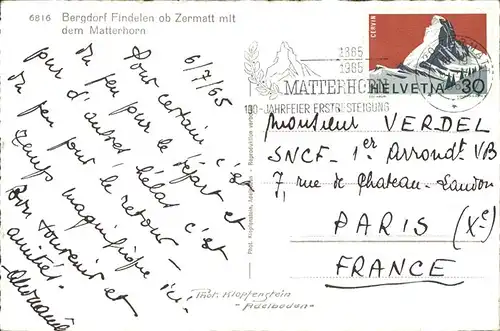 6816 Bergdorf Findelen ob Zermatt mit
dem Matterhorn
6/7/65
Pour certain c'est
du feu pour le départ et
pur d'autres hélas c'est
du feu pour le retour -
Temps magnifique ici
Bon souvenir et
amitiés.
Phot. Klopfenstein, Adelboden - Reproduktion verboten
CERVIN
HELVETIA 30
1865
1965
MATTERHORN
100-JAHRFEIER ERSTBESTEIGUNG
Monsieur VERDEL
SNCF - 1er Arrondt VB
7, rue de Chateau-Landon
PARIS (Xe)
FRANCE
Phot. Klopfenstein
"Adelboden"